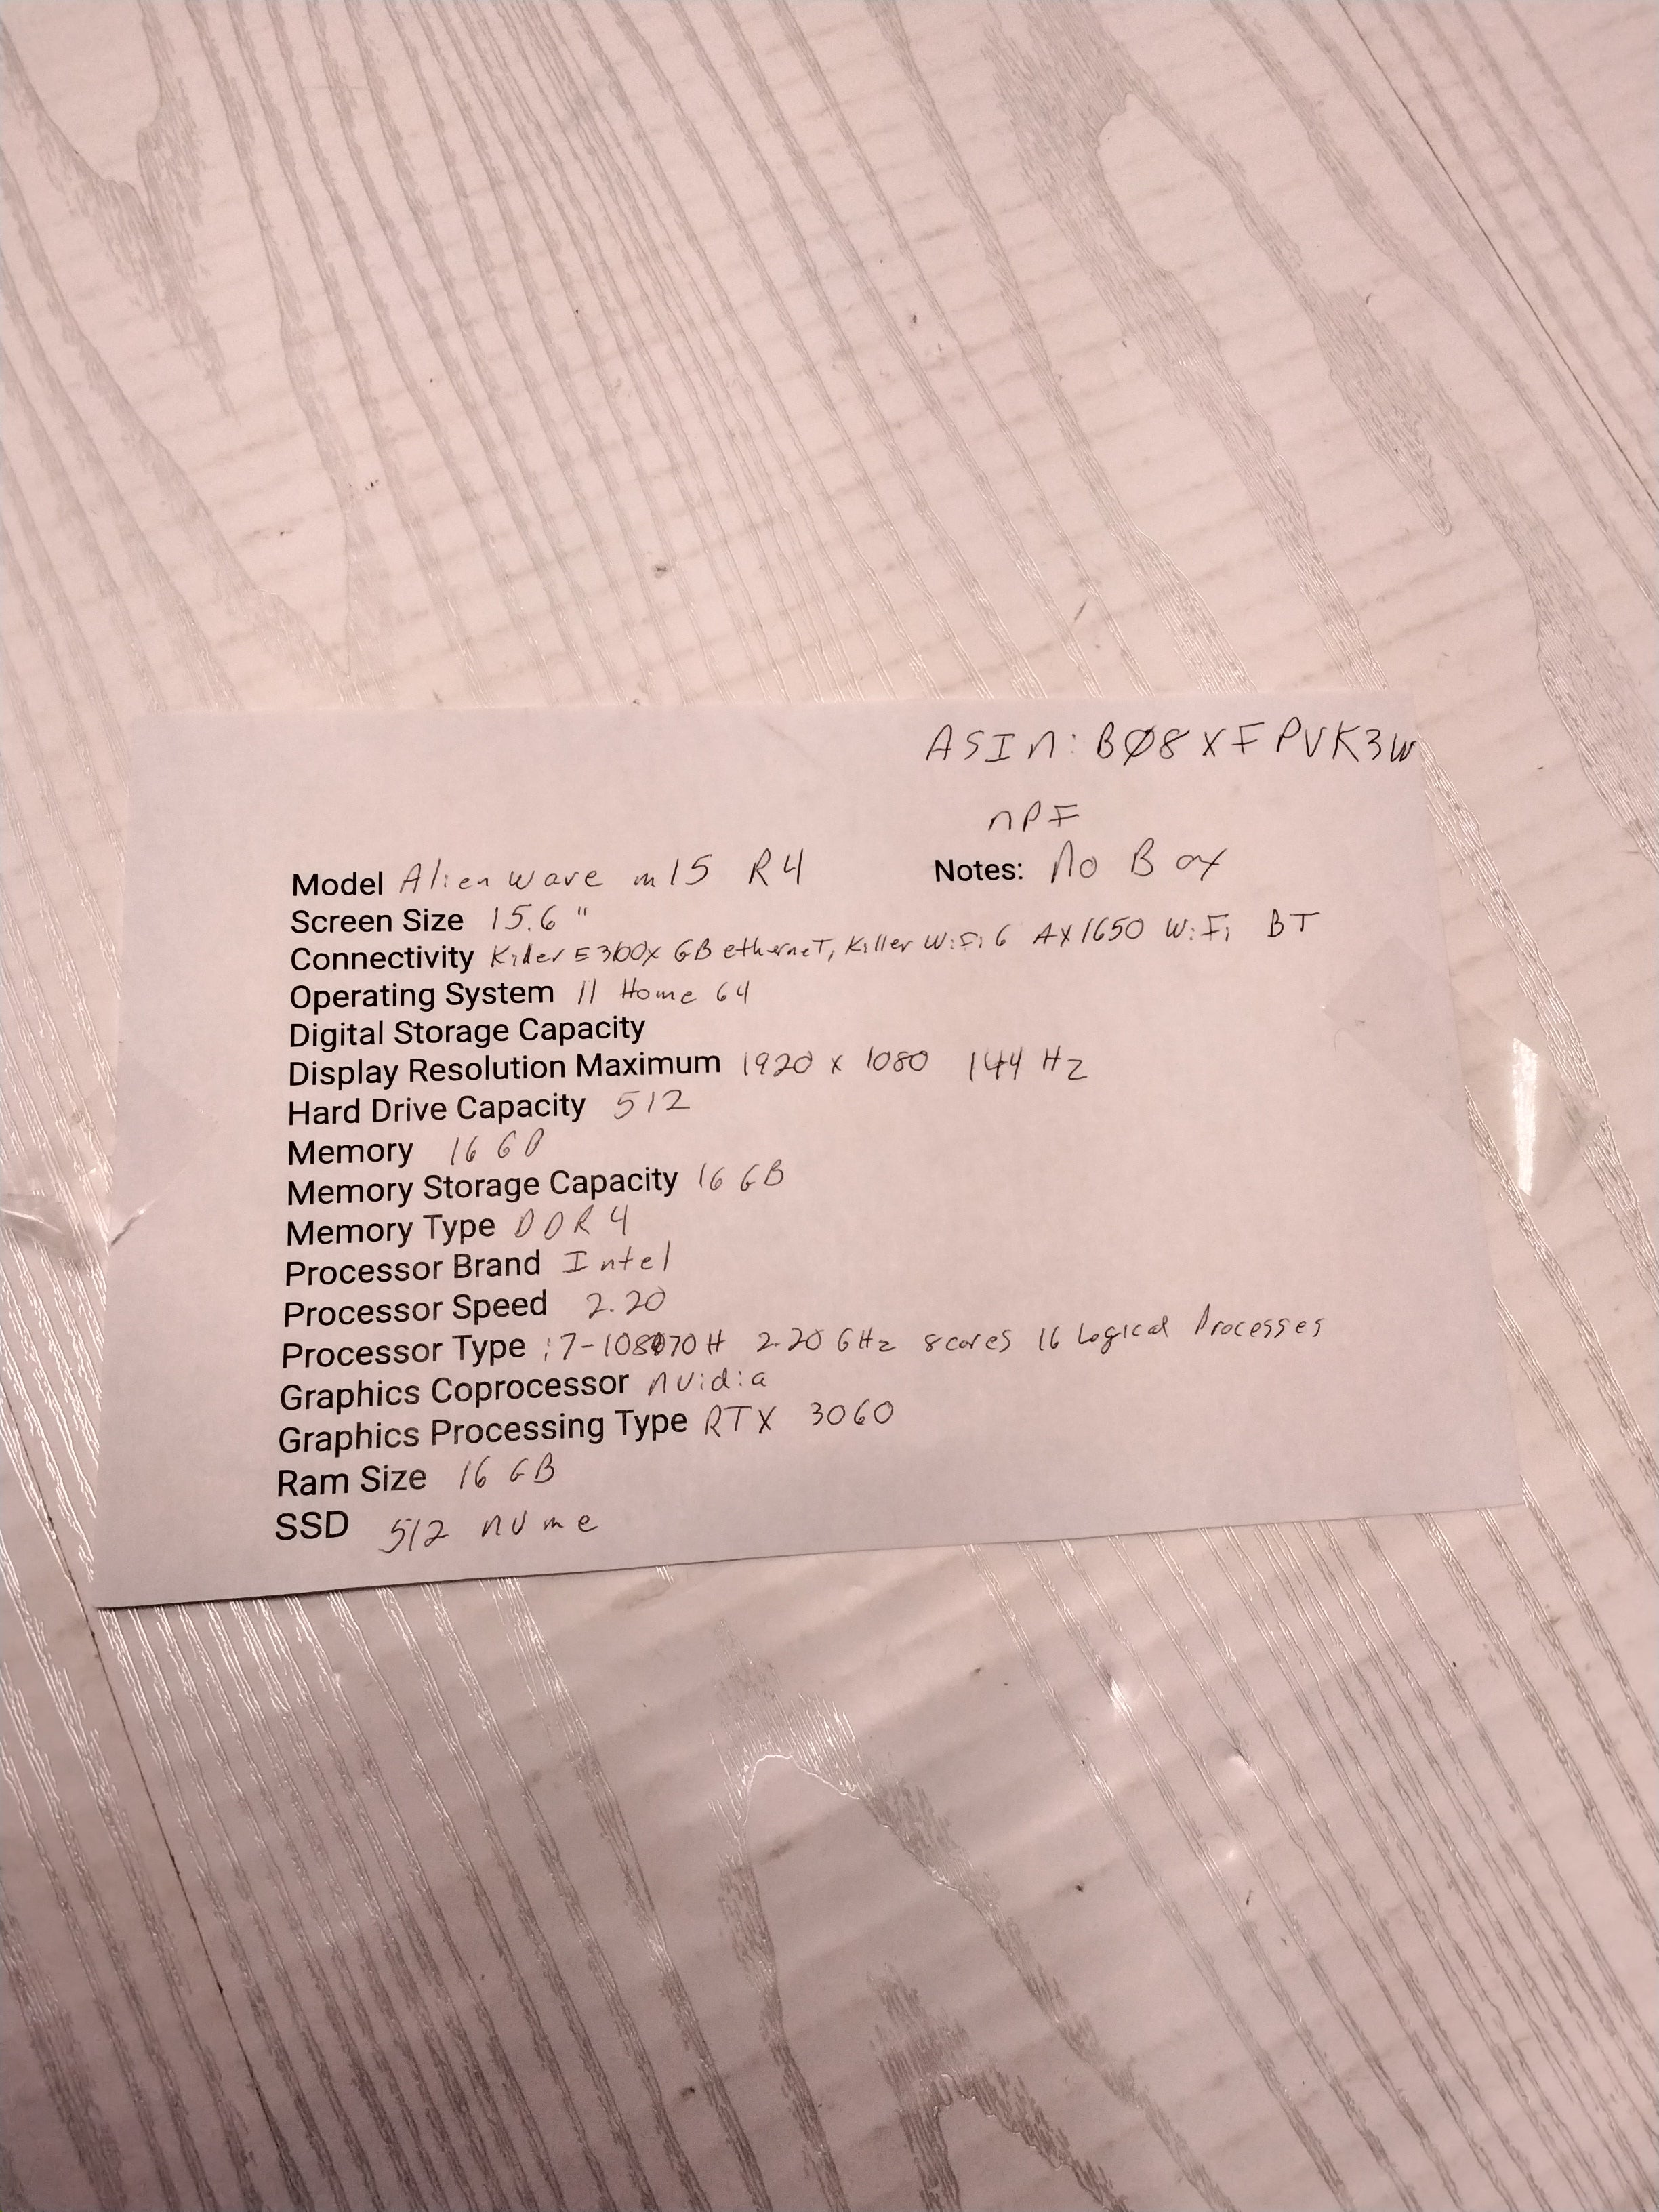 ASIN: B08XFPVK3W
NPF
Model Alienware m15 R4
Notes: No Box
Screen Size 15.6"
Connectivity Killer E3100x GB etherneT, Killer WiFi 6 AX1650 WiFi BT
Operating System 11 Home 64
Digital Storage Capacity
Display Resolution Maximum 1920 x 1080 144 Hz
Hard Drive Capacity 512
Memory 16 GB
Memory Storage Capacity 16 GB
Memory Type DDR4
Processor Brand Intel
Processor Speed 2.20
Processor Type 2.20 GHz 8 cores 16 Logical Processes
Graphics Coprocessor nvidia
Graphics Processing Type RTX 3060
Ram Size 16 GB
SSD 512 nvme